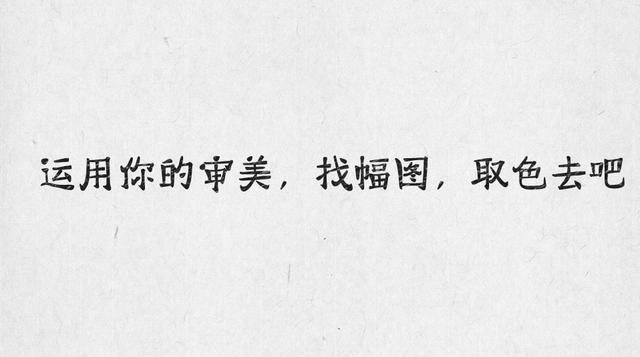 运用你的审美，找幅图，取色去吧